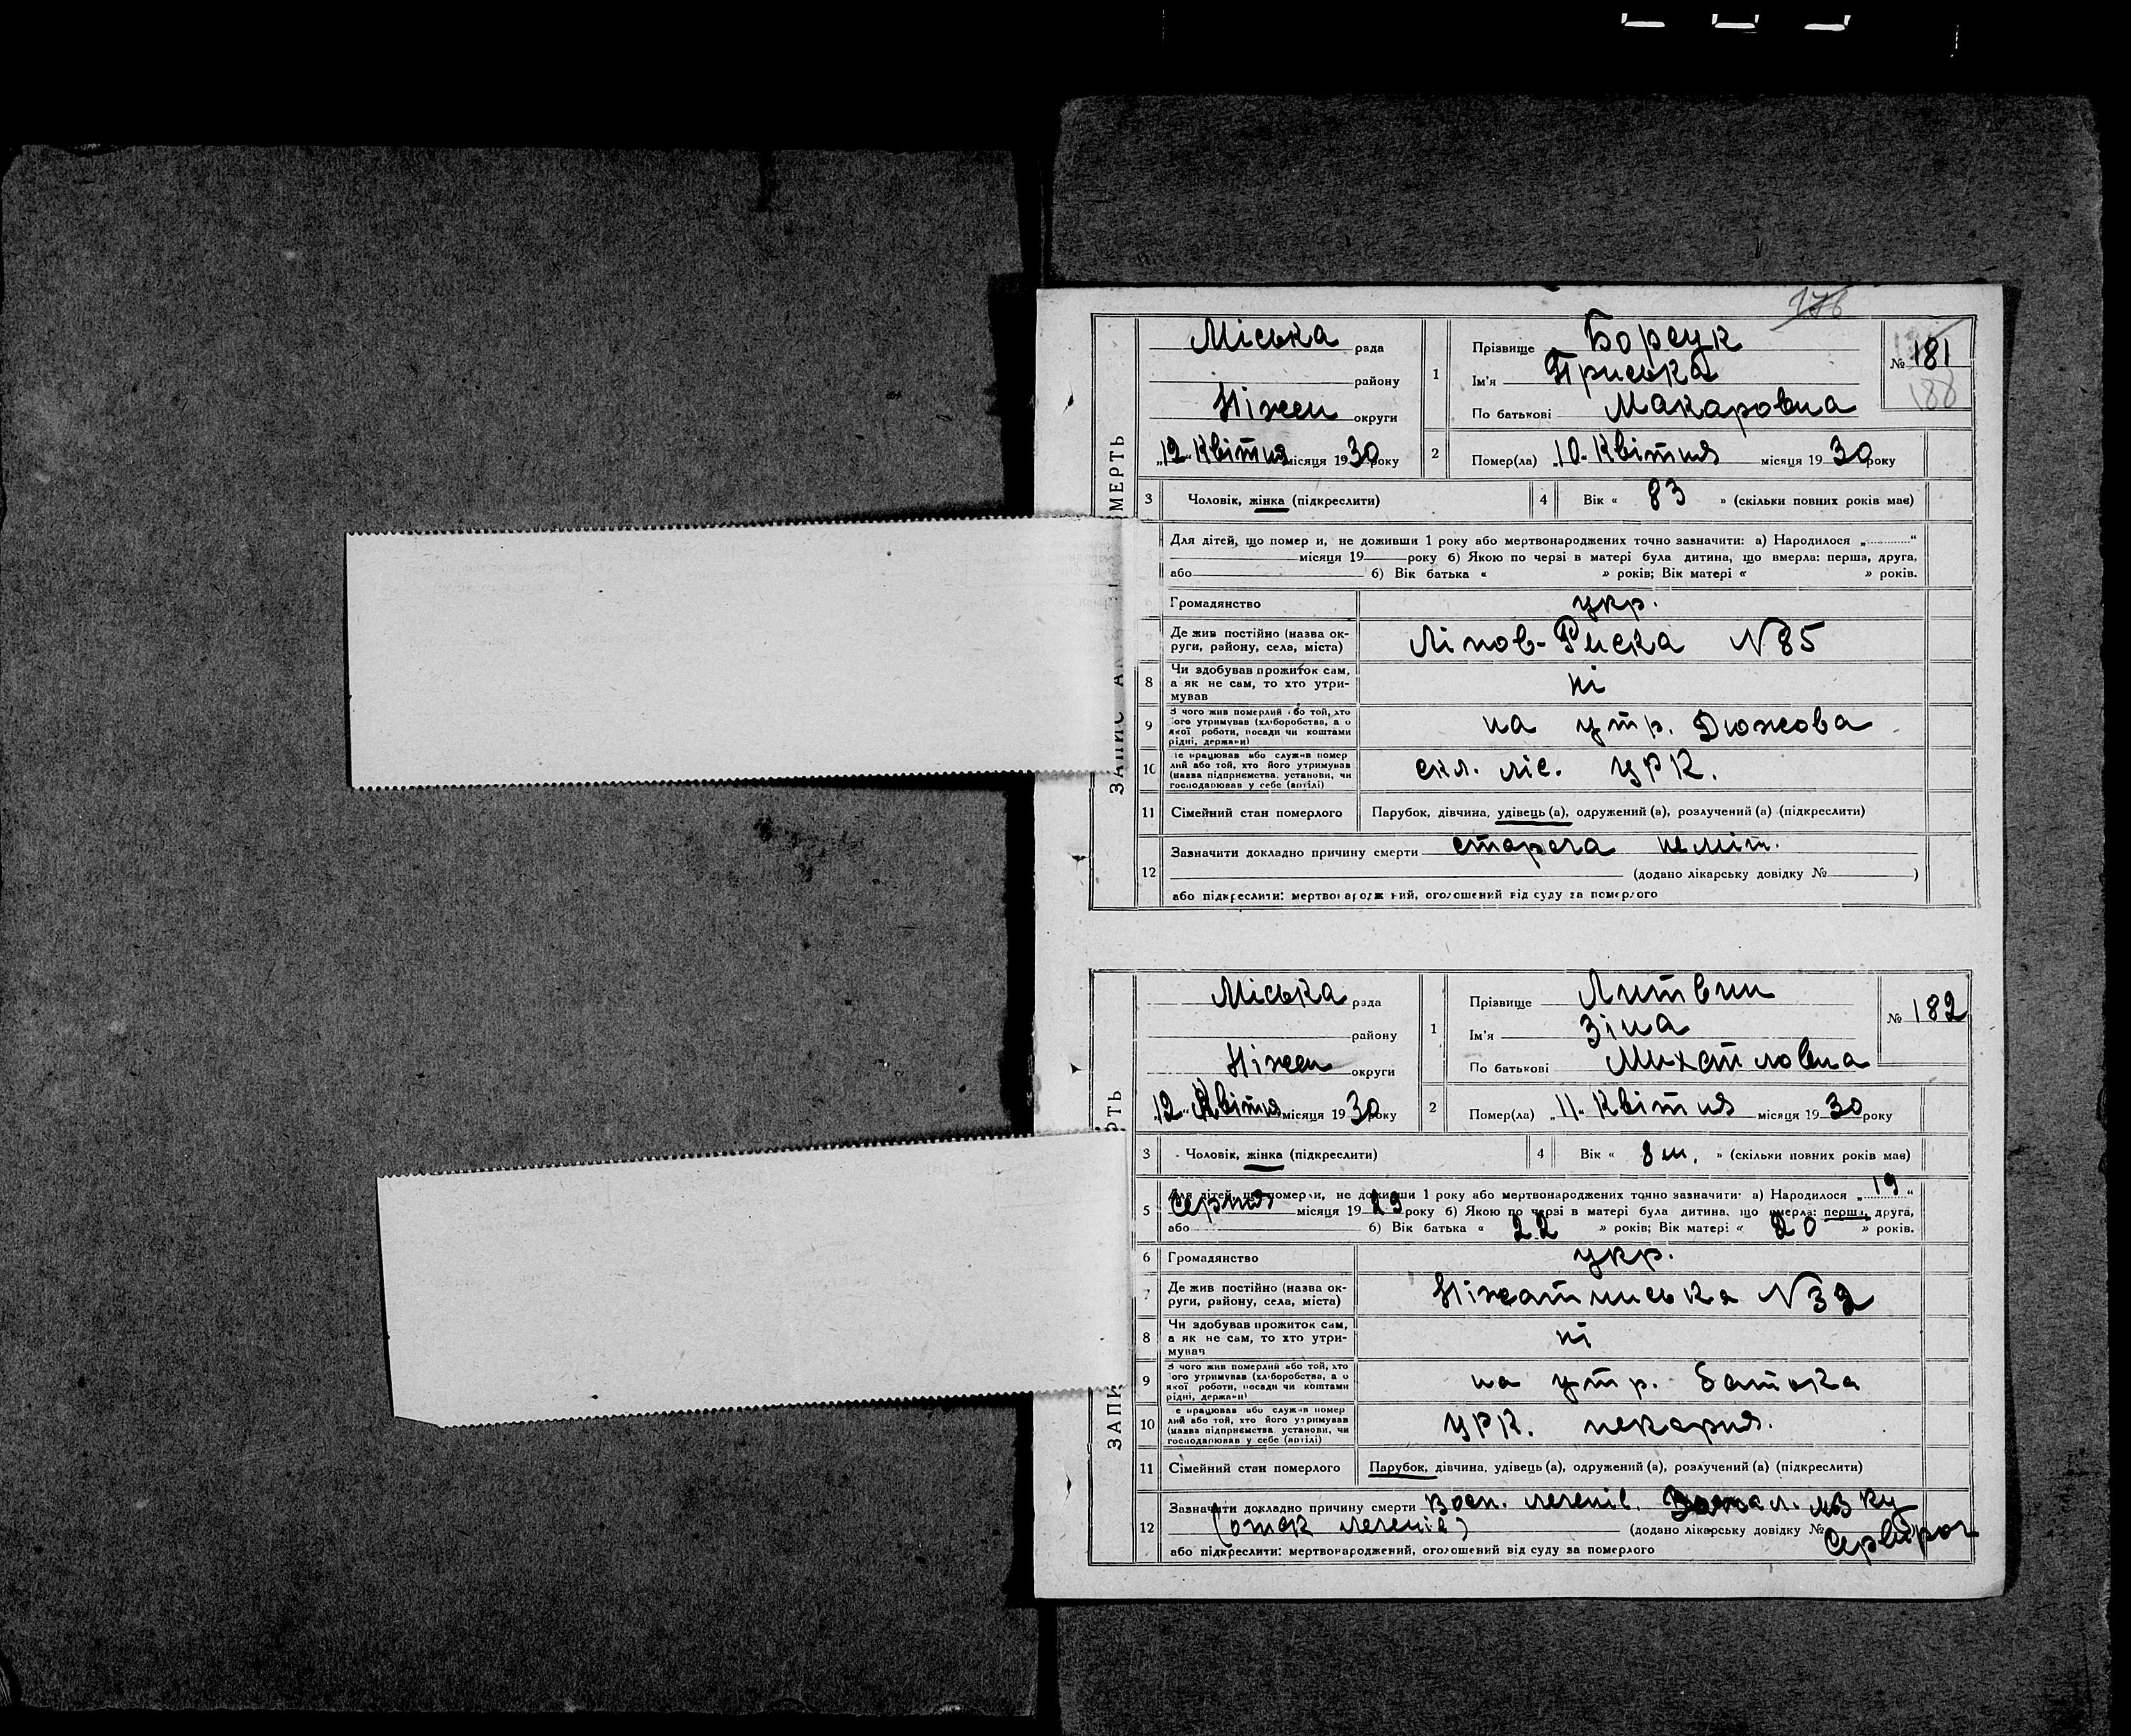 176
ЗАПИС А
МЕРТЬ
Міська рада
району
Ніжен округи
„12" Квітня місяця 1930 року
1
Прізвище Борсук
Ім'я Приська
По батькові Макаровна
№ 181
188
2
Помер(ла) „10" Квітня місяця 1930 року
3 Чоловік, жінка (підкреслити)
4 Вік « 83 » (скільки повних років має)
Для дітей, що помер и, не доживши 1 року або мертвонароджених точно зазначити: а) Народилося „ “
місяця 19 року б) Якою по черзі в матері була дитина, що вмерла: перша, друга,
або б) Вік батька « » років; Вік матері « » років.
Громадянство укр.
Де жив постійно (назва ок-
руги, району, села, міста) Ліпов-Риска N 85
8 Чи здобував прожиток сам,
а як не сам, то хто утри-
мував ні
9 З чого жив померлий або той, хто
ого утримував (хліборобства, а о
якої роботи, посади чи коштами
рідні, держави) на утр. Дюжова
10 е працював або служив помер
лий або той, хто його утримував
(назва підприємства, установи, чи
господарював у себе (артілі) скл. ліс. УРК.
11 Сімейний стан померлого Парубок, дівчина, удівець (а), одружений (а), розлучений (а) (підкреслити)
12 Зазначити докладно причину смерти стареча неміт.
(додано лікарську довідку № )
або підкреслити: мертвонароджений, оголошений від суду за померлого
ЗАПИ
РТЬ
Міська рада
району
Ніжен округи
„12" Квітня місяця 1930 року
1
Прізвище Литвин
Ім'я Зіна
По батькові Михайловна
№ 182
2
Помер(ла) „11" Квітня місяця 1930 року
3 Чоловік, жінка (підкреслити)
4 Вік « 8 м. » (скільки повних років має)
5 Для дітей, що померли, не доживши 1 року або мертвонароджених точно зазначити: а) Народилося „19“
Серпня місяця 1929 року б) Якою по черзі в матері була дитина, що вмерла: перша, друга,
або б) Вік батька « 22 » років; Вік матері « 20 » років.
6 Громадянство укр.
7 Де жив постійно (назва ок-
руги, району, села, міста) N 32
8 Чи здобував прожиток сам,
а як не сам, то хто утри-
мував ні
9 З чого жив померлий або той, хто
ого утримував (хліборобства, а о
якої роботи, посади чи коштами
рідні, держави) на утр. батька
10 е працював або служив помер
лий або той, хто його утримував
(назва підприємства, установи, чи
господарював у себе (артілі) УРК. пекарня.
11 Сімейний стан померлого Парубок, дівчина, удівець (а), одружений (а), розлучений (а) (підкреслити)
12 Зазначити докладно причину смерти Восп. легенів.
(отек легенів) (додано лікарську довідку №
або підкреслити: мертвонароджений, оголошений від суду за померлого